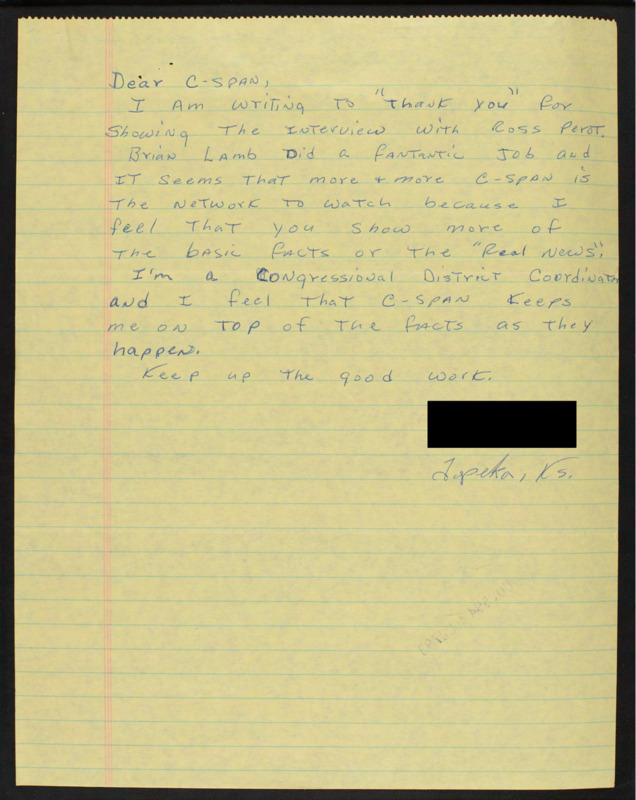 Dear C-SPAN,
I Am writing to "Thank you" for
Showing The Interview with Ross Perot.
Brian Lamb Did a fantantic Job and
IT seems that more + more C-SPAN is
the network to watch because I
feel that you show more of
the basic facts or the "Real News".
I'm a Congressional District Coordinator
and I feel that C-SPAN keeps
me on TOP of the facts as they
happen.
Keep up the good work.
Topeka, Ks.